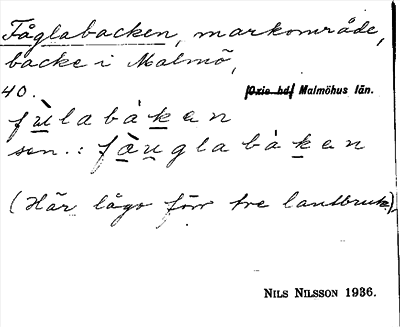 Fåglabacken, markområde,
backe i Malmö,
40. Oxie hd Malmöhus län.
fùlabàken
sen.: fòuglabàken
(Här lågo förr tre lantbruk),
NILS NILSSON 1936.